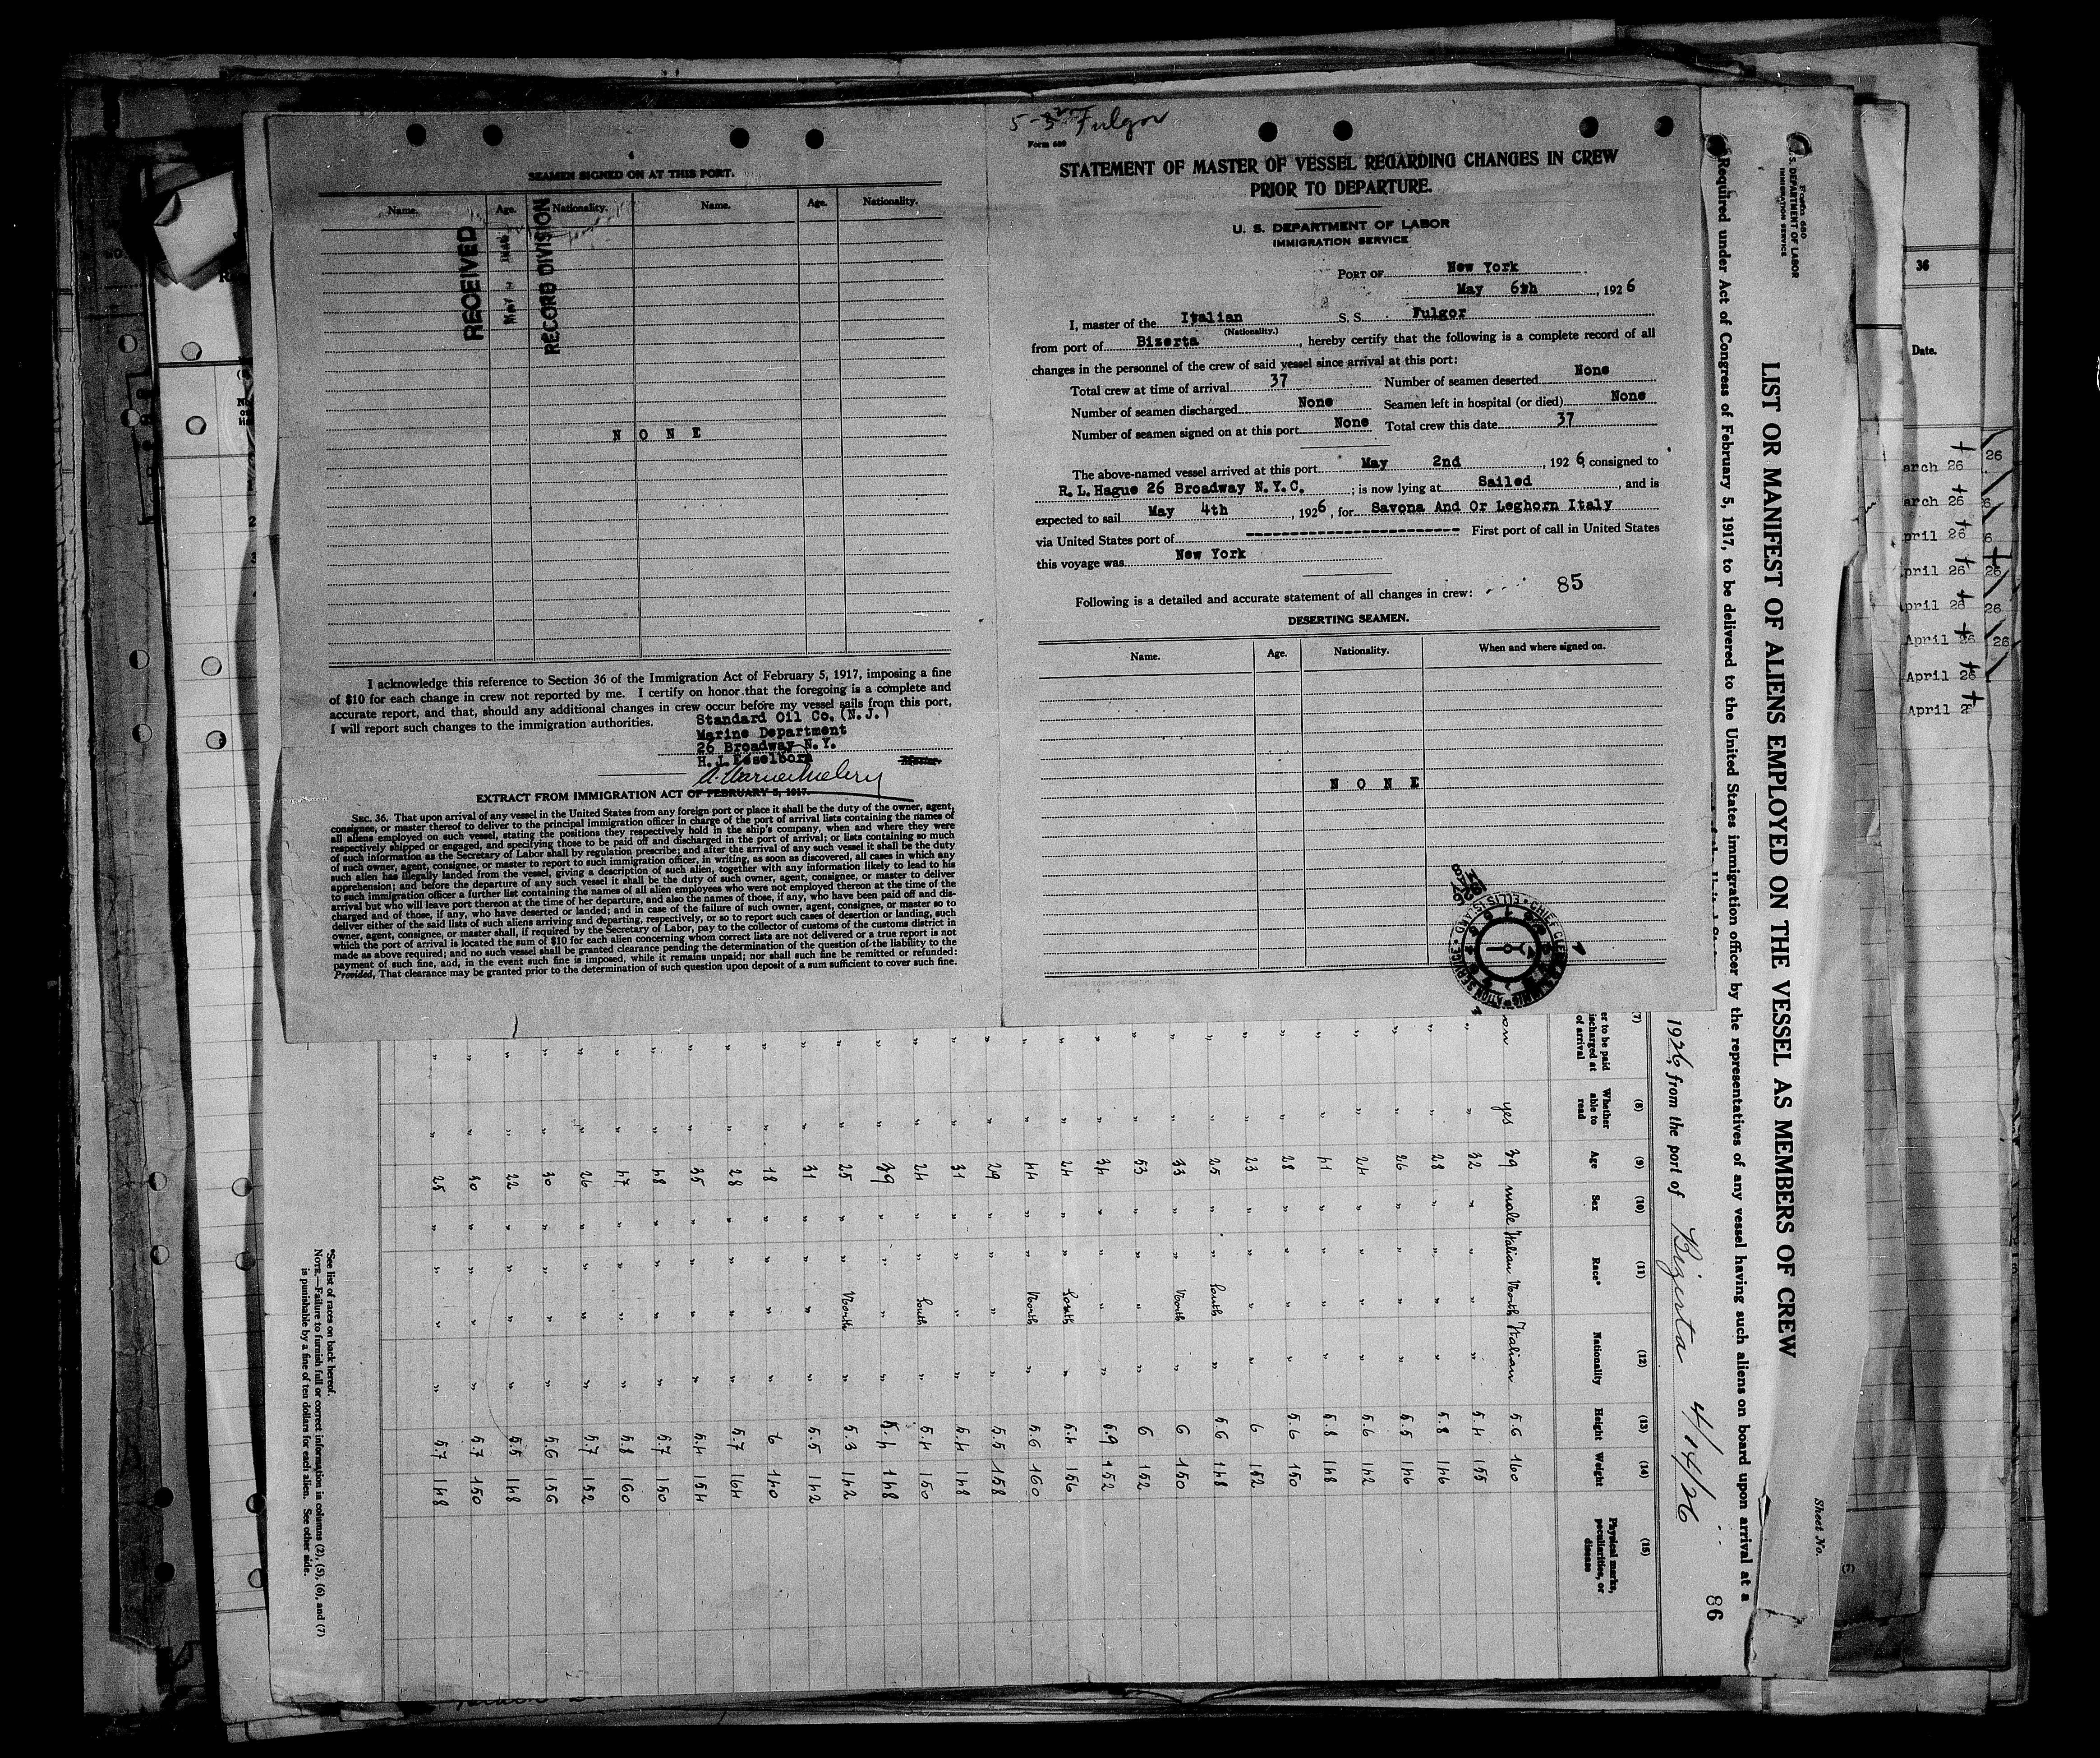 SEAMEN SIGNED ON AT THIS PORT.
Name. Age. Nationality. Name. Age. Nationality.
RECEIVED
RECORD DIVISION
N O N E
I acknowledge this reference to Section 36 of the Immigration Act of February 5, 1917, imposing a fine
of $10 for each change in crew not reported by me. I certify on honor that the foregoing is a complete and
accurate report, and that, should any additional changes in crew occur before my vessel sails from this port,
I will report such changes to the immigration authorities.
Standard Oil Co. (N.J.)
Marine Department
26 Broadway N.Y.
H. J. Esselborn
Master.
EXTRACT FROM IMMIGRATION ACT OF FEBRUARY 5, 1917.
SEC. 36. That upon arrival of any vessel in the United States from any foreign port or place it shall be the duty of the owner, agent,
consignee, or master thereof to deliver to the principal immigration officer in charge of the port of arrival lists containing the names of
all aliens employed on such vessel, stating the positions they respectively hold in the ship's company, when and where they were
respectively shipped or engaged, and specifying those to be paid off and discharged in the port of arrival; or lists containing so much
of such information as the Secretary of Labor shall by regulation prescribe; and after the arrival of any such vessel it shall be the duty
of such owner, agent, consignee, or master to report to such immigration officer, in writing, as soon as discovered, all cases in which any
such alien has illegally landed from the vessel, giving a description of such alien, together with any information likely to lead to his
apprehension; and before the departure of any such vessel it shall be the duty of such owner, agent, consignee, or master to deliver
to such immigration officer a further list containing the names of all alien employees who were not employed thereon at the time of the
arrival but who will leave port thereon at the time of her departure, and also the names of those, if any, who have been paid off and dis-
charged and of those, if any, who have deserted or landed; and in case of the failure of such owner, agent, consignee, or master so to
deliver either of the said lists of such aliens arriving and departing, respectively, or so to report such cases of desertion or landing, such
owner, agent, consignee, or master shall, if required by the Secretary of Labor, pay to the collector of customs of the customs district in
which the port of arrival is located the sum of $10 for each alien concerning whom correct lists are not delivered or a true report is not
made as above required; and no such vessel shall be granted clearance pending the determination of the question of the liability to the
payment of such fine, and, in the event such fine is imposed, while it remains unpaid; nor shall such fine be remitted or refunded:
Provided, That clearance may be granted prior to the determination of such question upon deposit of a sum sufficient to cover such fine.
5-3 Fulgor
Form 689
STATEMENT OF MASTER OF VESSEL REGARDING CHANGES IN CREW
PRIOR TO DEPARTURE.
U. S. DEPARTMENT OF LABOR
IMMIGRATION SERVICE
PORT OF New York
May 6th, 1926
I, master of the Italian S. S. Fulgor
(Nationality.)
from port of Bizerta, hereby certify that the following is a complete record of all
changes in the personnel of the crew of said vessel since arrival at this port:
Total crew at time of arrival 37 Number of seamen deserted None
Number of seamen discharged None Seamen left in hospital (or died) None
Number of seamen signed on at this port None Total crew this date 37
The above-named vessel arrived at this port May 2nd, 1926, consigned to
R. L. Hague 26 Broadway N.Y.C.; is now lying at Sailed, and is
expected to sail May 4th, 1926, for Savona And Or Leghorn Italy
via United States port of ---------- First port of call in United States
this voyage was New York
Following is a detailed and accurate statement of all changes in crew: 85
DESERTING SEAMEN.
Name. Age. Nationality. When and where signed on.
N O N E
Form 680
U. S. DEPARTMENT OF LABOR
IMMIGRATION SERVICE
Sheet No.
LIST OR MANIFEST OF ALIENS EMPLOYED ON THE VESSEL AS MEMBERS OF CREW
Required under Act of Congress of February 5, 1917, to be delivered to the United States immigration officer by the representatives of any vessel having such aliens on board upon arrival at a
86
1926, from the port of Bizerta 4/14/26
(7) (8) (9) (10) (11) (12) (13) (14) (15)
Whether able to read Age Sex Race* Nationality Height Weight Physical marks, peculiarities, or disease
yes 39 male Italian North Italian 5.6 160
" 32 " " " " 5.4 155
" 28 " " " " 5.8 146
" 26 " " " " 5.5 146
" 24 " " " " 5.6 142
" 41 " " " " 5.8 148
" 28 " " " " 5.6 150
" 23 " " " " 6 152
" 25 " " South " 5.6 148
" 33 " " North " 6 150
" 53 " " " " 6 152
" 34 " " " " 5.9 152
" 24 " " South " 5.4 156
" 44 " " North " 5.6 160
" 29 " " " " 5.5 158
" 31 " " " " 5.4 148
" 24 " " South " 5.4 150
" 39 " " " " 5.4 148
" 25 " " North " 5.3 142
" 31 " " " " 5.5 142
" 18 " " " " 6 140
" 28 " " " " 5.7 164
" 35 " " " " 5.4 154
" 48 " " " " 5.7 150
" 47 " " " " 5.8 160
" 26 " " " " 5.7 152
" 30 " " " " 5.6 156
" 22 " " " " 5.5 148
" 30 " " " " 5.7 150
" 25 " " " " 5.7 148
*See list of races on back hereof.
NOTE.—Failure to furnish full or correct information in columns (2), (5), (6), and (7)
is punishable by a fine of ten dollars for each alien. See other side.
36
Date.
arch 26
arch 26
pril 26
pril 26
pril 26
April 26
April 26
April 2